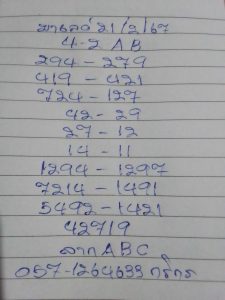 มาเลย์ 21/2/67
4-2 AB
294 - 279
419 - 421
724 - 127
42 - 29
27 - 12
14 - 11
1294 - 1297
7214 - 1491
5492 - 1421
42719
ลาก ABC
057-1264633